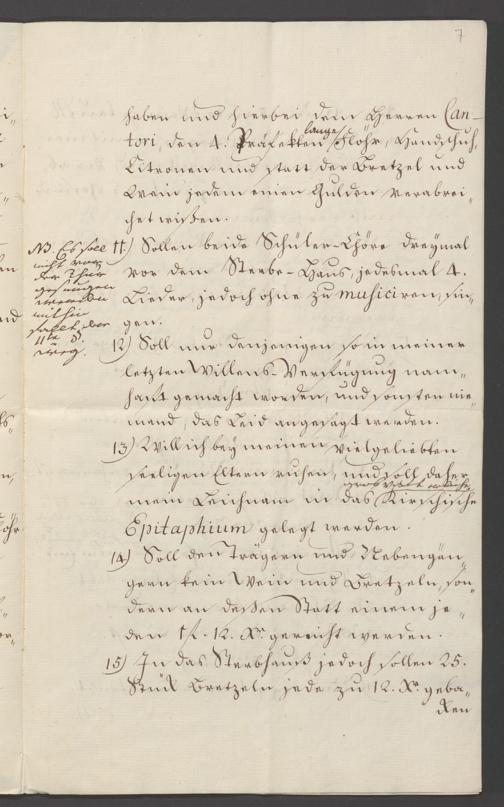 7
haben und hierbei dem Herren Can-
tori, den 4. Präfekten lange Flöhr, Handschuh,
Citronen und statt der Bretzel und
Wein jedem einen Gulden verabrei-
chet wißen.
NB. Es soll
nicht vor
der Thür
gesungen
werden
mithin
fällt der
11te §
weg.
11) Sollen beide Schüler-Chöre dreymal
vor dem Sterbe-Haus, jedesmal 4.
Lieder, jedoch ohne zu musiciren, sin-
gen.
12) Soll nur denjenigen so in meiner
letzten Willens-Verfügung nam-
haft gemacht worden, und sonsten nie-
mand, das Leid angesagt werden.
13) Will ich bey meinen vielgeliebten
seeligen Eltern ruhen, und soll daher
mein Leichnam in das Kirschische
Epitaphium gelegt werden.
14) Soll den Trägern und Nebengän-
gern kein Wein und Bretzeln, son-
dern an deßen Statt einem je-
den 1 fl. 12. Xr. gereicht werden.
15) In das Sterbhauß jedoch sollen 25.
Stück Bretzeln jede zu 12. Xr. geba-
cken